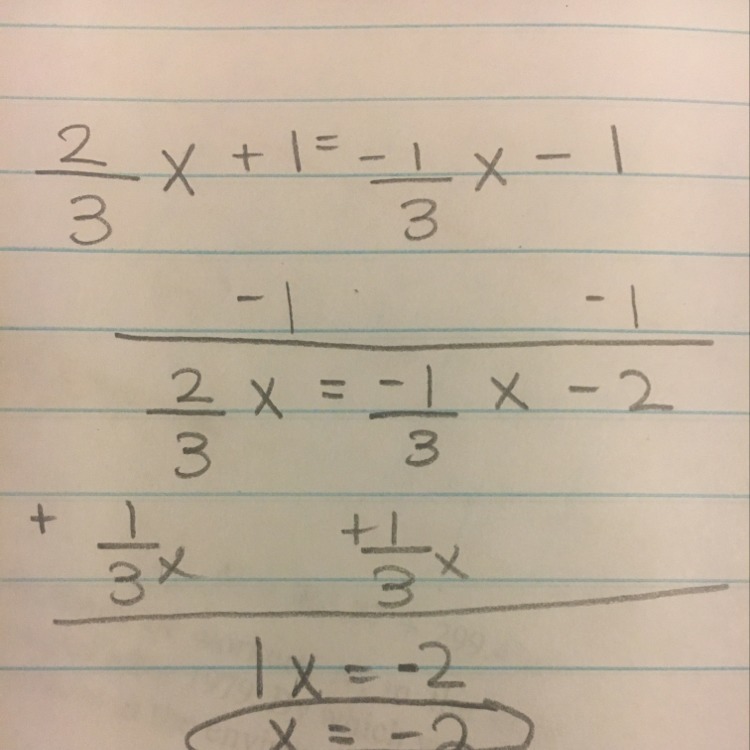 2/3 x + 1 = -1/3 x - 1
-1 -1
2/3 x = -1/3 x - 2
+ 1/3 x +1/3 x
1x = -2
x = -2